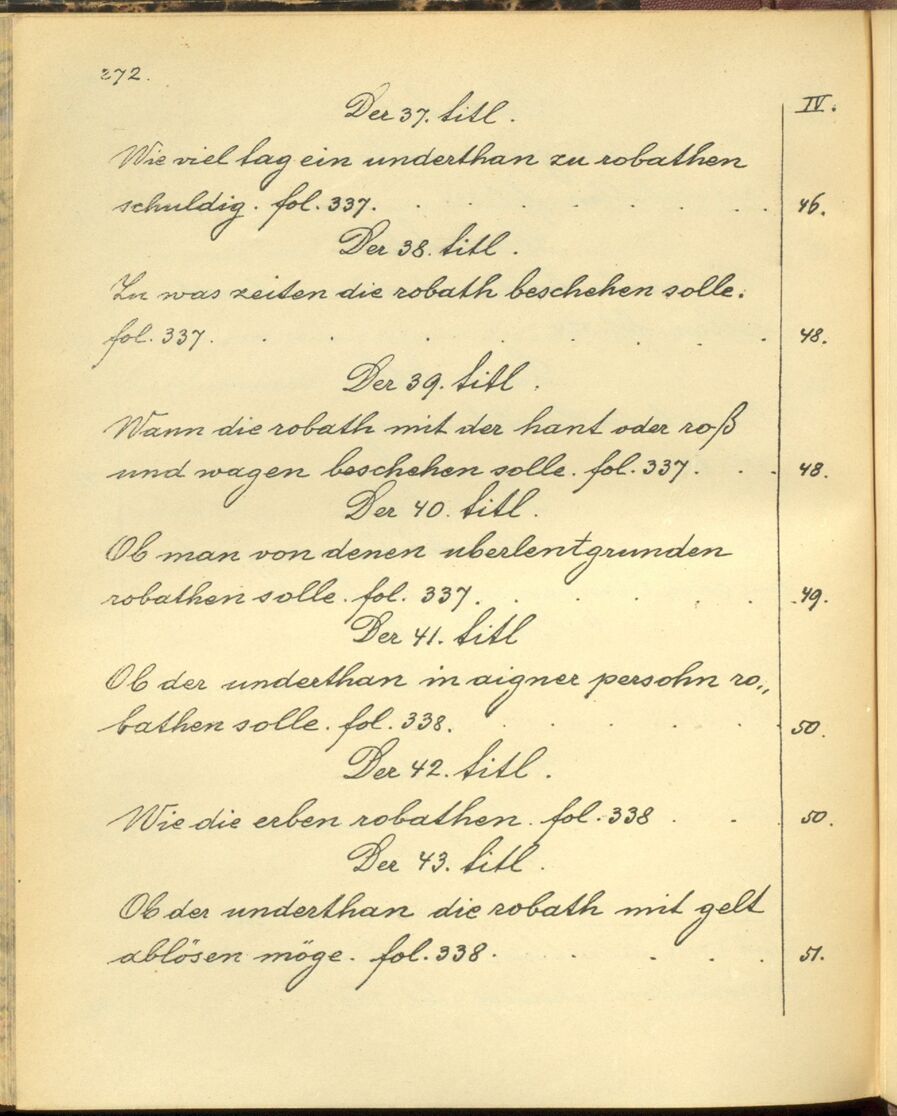 272.
IV.
Der 37. titl.
Wie viel tag ein underthan zu robathen
schuldig. fol. 337. . . . . . . . . 46.
Der 38. titl.
Zu was zeiten die robath beschehen solle.
fol. 337. . . . . . . . . 48.
Der 39. titl.
Wann die robath mit der hant oder roß
und wagen beschehen solle. fol. 337. . . 48.
Der 40. titl.
Ob man von denen uberlentgrunden
robathen solle. fol. 337. . . . . . 49.
Der 41. titl
Ob der underthan in aigner persohn ro„
bathen solle. fol. 338. . . . . . . 50.
Der 42. titl.
Wie die erben robathen. fol. 338 . . . 50.
Der 43. titl.
Ob der underthan die robath mit gelt
ablösen möge. fol. 338. . . . . 51.